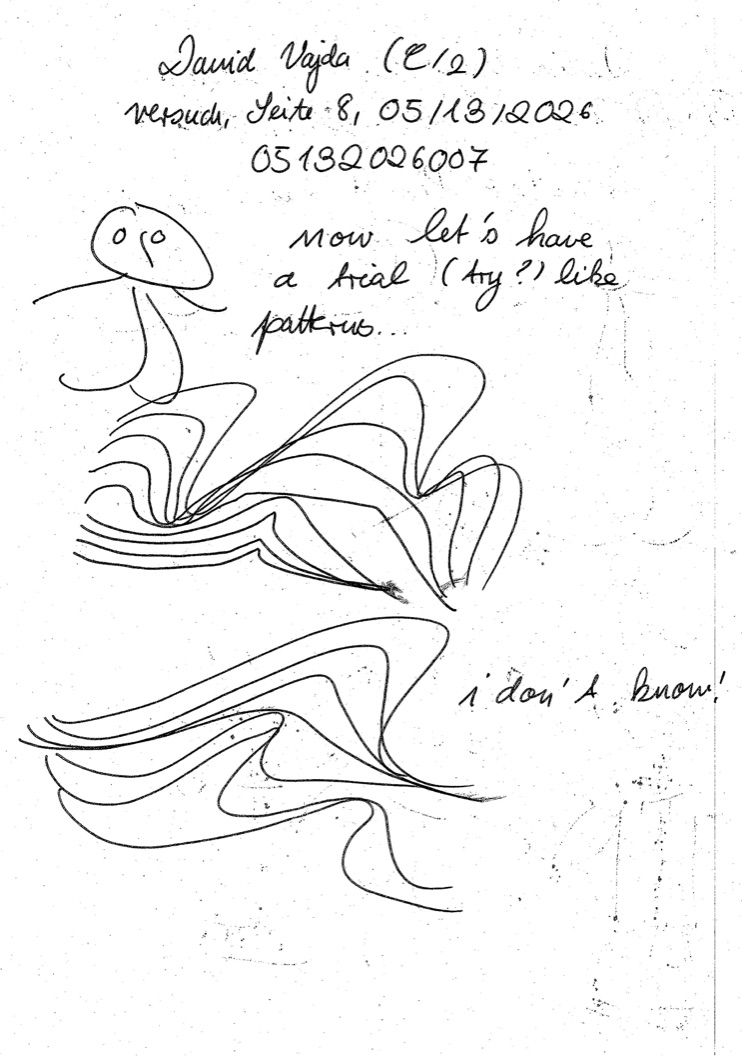 David Vajda (C/2)
Versuch, Seite 8, 05/13/2026
05132026007
now let's have
a trial (try?) like
patterns...
i don't know!